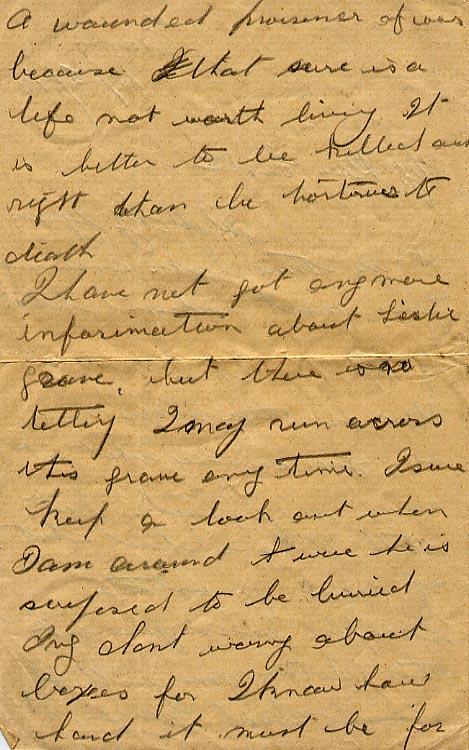 A wounded prisoner of war
because that sure is a
life not worth living It
is better to be killed out
right than be tortured to
death
I have not got any more
information about Leslie
grave, but there is no
telling I may run across
his grave any time. I sure
keep a look out when
I am around were he is
suposed to be buried
Ong dont worry about
boxes for I know how
hard it must be for